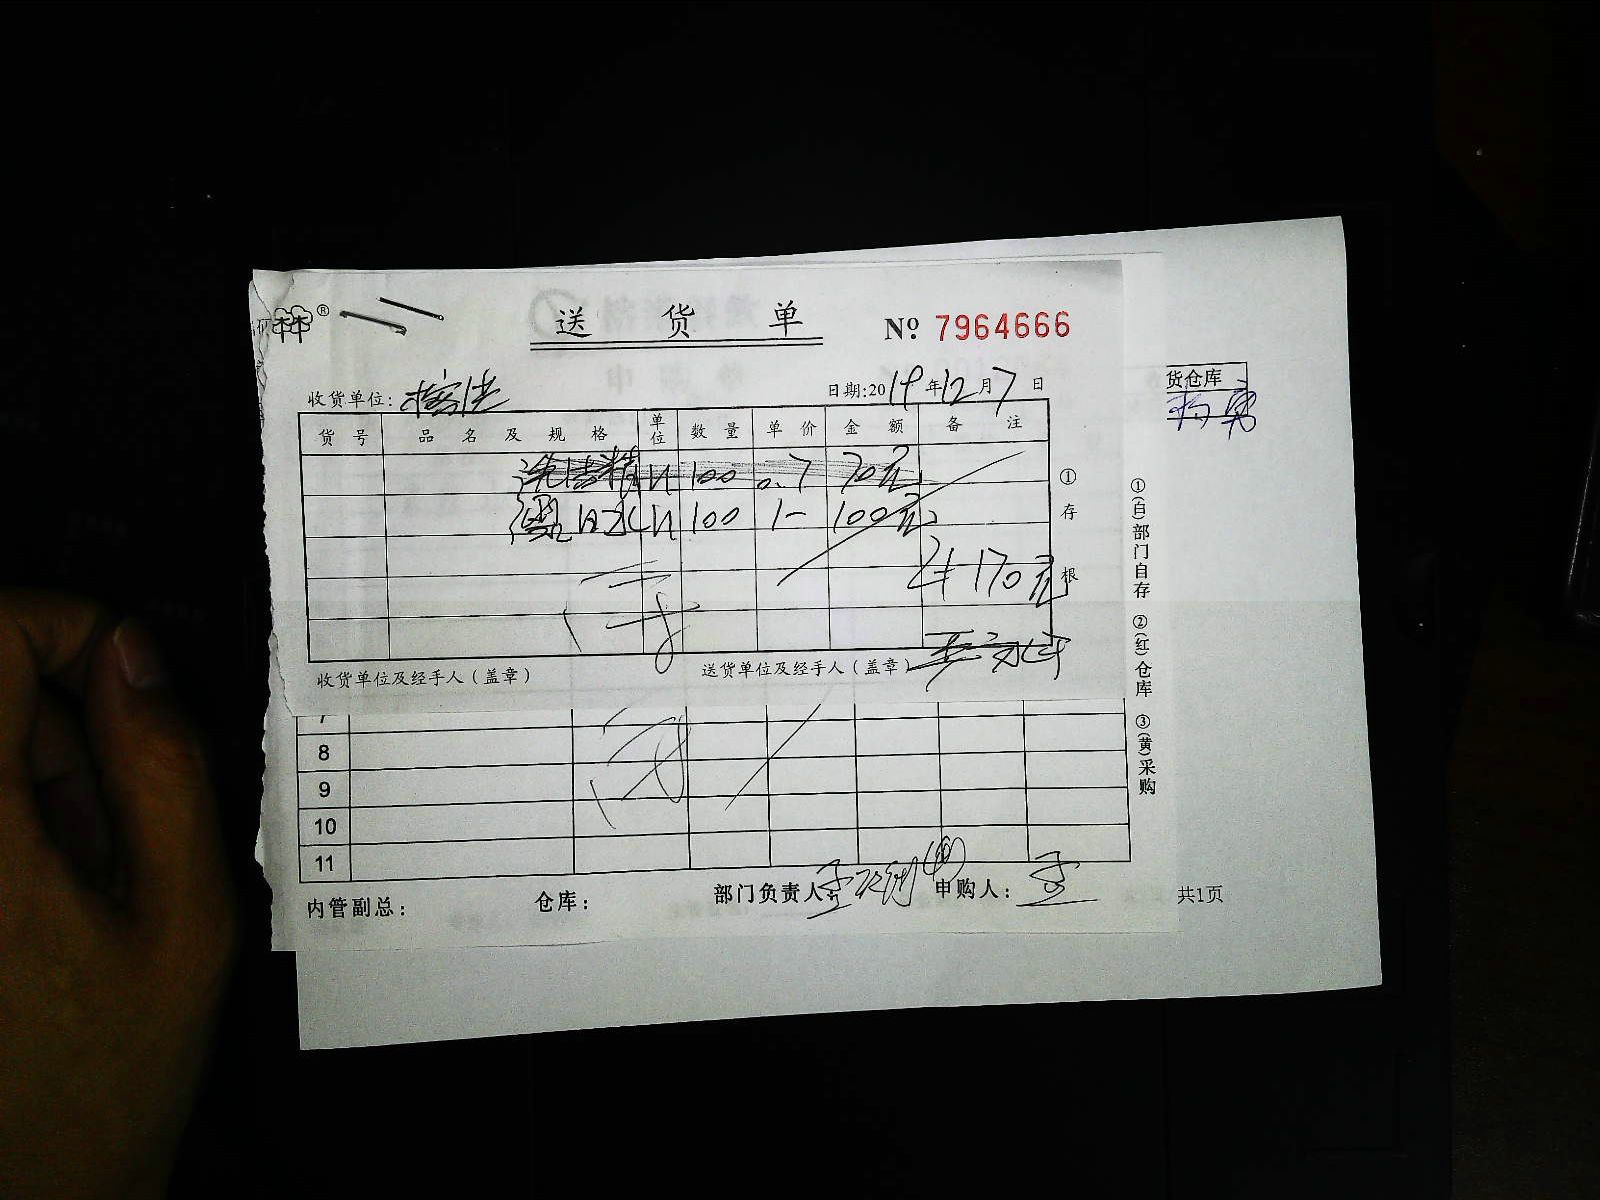 林林®
送货单 № 7964666
收货单位: 日期:2019年12月7日
货号 品名及规格 单位 数量 单价 金额 备注
洗洁精 100 0.7 70元
100 1- 100元
170元
① 存根
收货单位及经手人(盖章) 送货单位及经手人(盖章)
货仓库
①(白)部门自存 ②(红)仓库 ③(黄)采购
7
8
9
10
11
内管副总: 仓库: 部门负责人: 申购人: 共1页